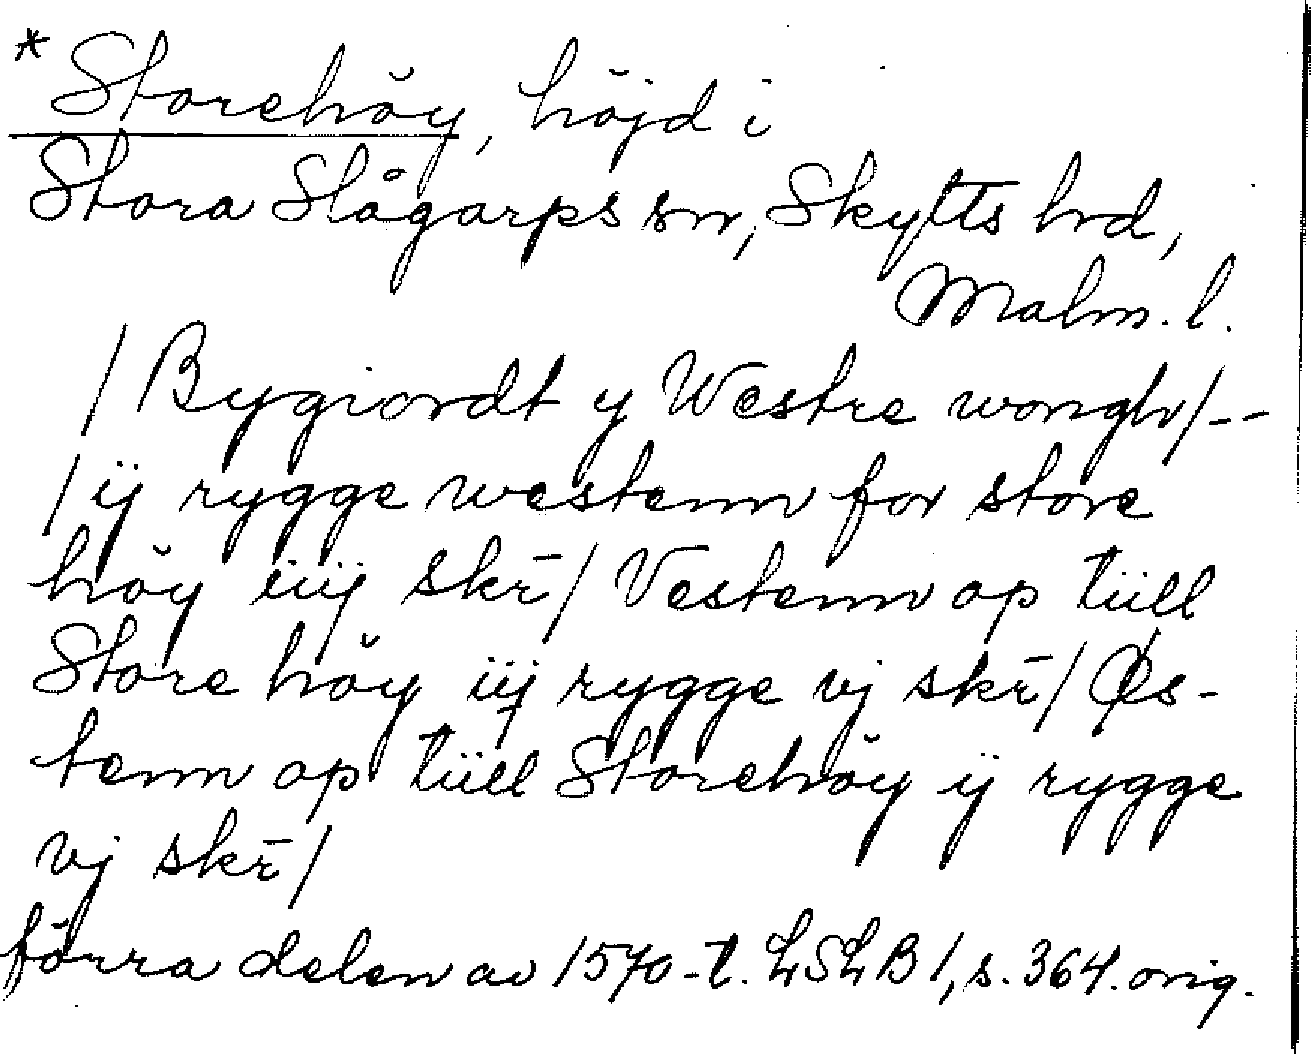 * Storehöy, höjd i
Stora Slågarps sn, Skytts hd,
Malm. l.
/ Bygiordt y Westre wongh/--
/ ij rygge westenn for store
höy iiij skr̄/ Vestenn op tüll
Store höy iij rygge vj skr̄/ Øs-
tenn op tüll Storehöy ij rygge
vj skr̄/
förra delen av 1570-t. LSLB 1, s. 364. orig.